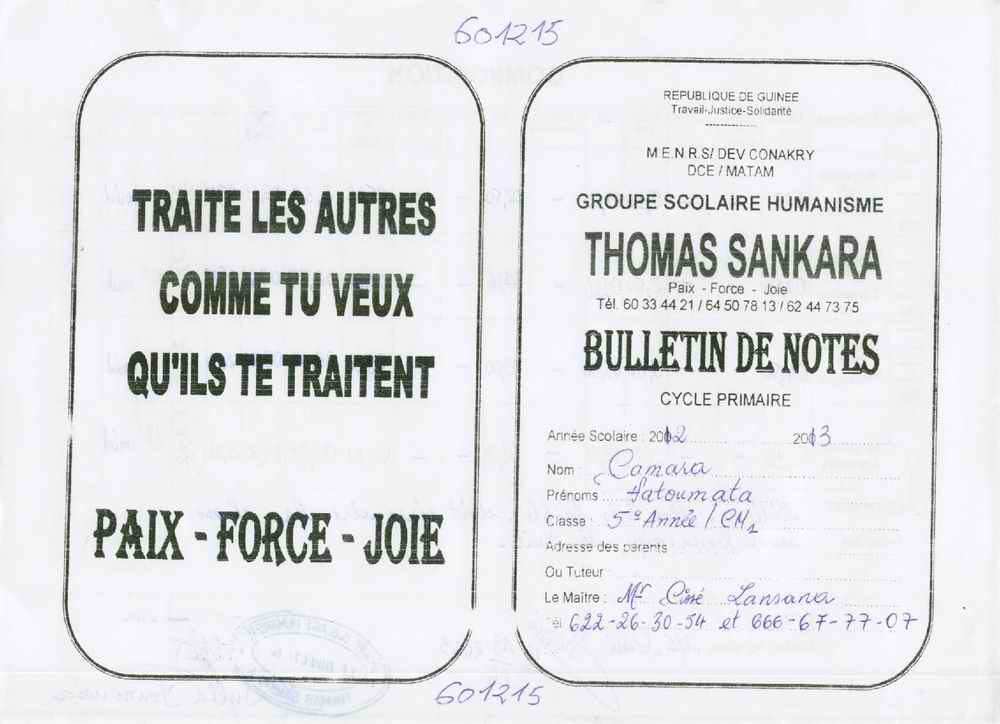 601215
TRAITE LES AUTRES
COMME TU VEUX
QU'ILS TE TRAITENT
PAIX - FORCE - JOIE
REPUBLIQUE DE GUINEE
Travail-Justice-Solidarité
M.E.N R.S/ DEV CONAKRY
DCE / MATAM
GROUPE SCOLAIRE HUMANISME
THOMAS SANKARA
Paix - Force - Joie
Tél. 60 33 44 21 / 64 50 78 13 / 62 44 73 75
BULLETIN DE NOTES
CYCLE PRIMAIRE
Année Scolaire : 2012 2013
Nom : Camara
Prénoms : Fatoumata
Classe : 5e Année / CM1
Adresse des parents
Ou Tuteur
Le Maître : Mr Ciné Lansana
Tél 622-26-30-54 et 666-67-77-07
601215